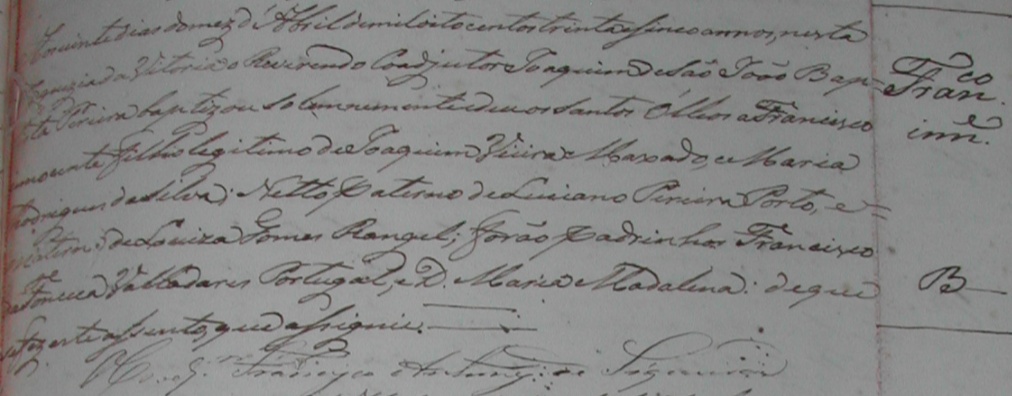 Aos vinte dias do mez d'Abril de mil oito centos trinta e sinco annos, nesta
Freguezia da Vitoria o Reverendo Coadjutor Joaquim de São João Bap-
tista Pereira baptizou solemnemente e deu os Santos Olleos a Francisco
innocente filho legitimo de Joaquim Vieira Maxado, e Maria
Rodrigues da Silva: Netto paterno de Luciano Pereira Porto, e
matern: de Louiza Gomes Rangel; forão padrinhos Francisco
da Fonceca Valladares Portugal, e D. Maria Madalena: de que
se fez este assento, que assignei.
Francisco Antonio de
Franco
inne.
B